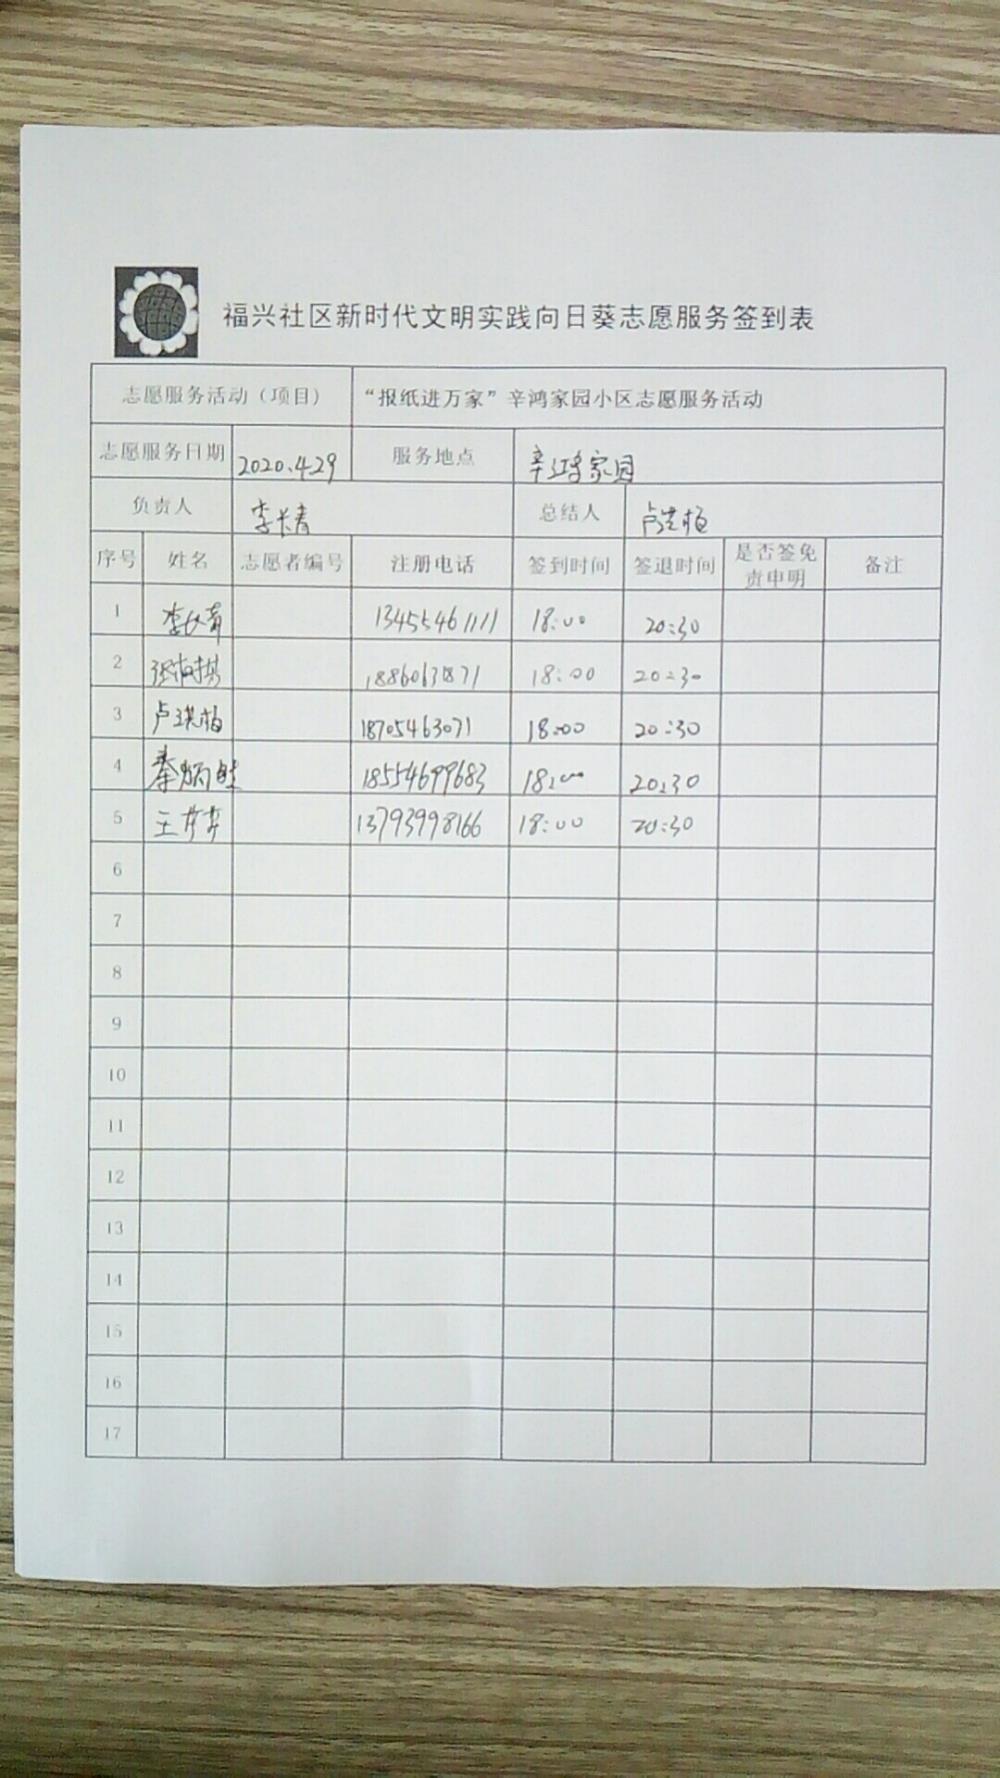 福兴社区新时代文明实践向日葵志愿服务签到表
志愿服务活动（项目） “报纸进万家”辛鸿家园小区志愿服务活动
志愿服务日期 2020.4.29 服务地点 辛鸿家园
负责人 李长青 总结人 卢洪柏
序号 姓名 志愿者编号 注册电话 签到时间 签退时间 是否签免责申明 备注
1 李长青 13455461111 18:00 20:30
2 18:00 20:30
3 卢洪柏 18705463071 18:00 20:30
4 秦炳 18554699683 18:00 20:30
5 王芹芹 13793998166 18:00 20:30
6
7
8
9
10
11
12
13
14
15
16
17